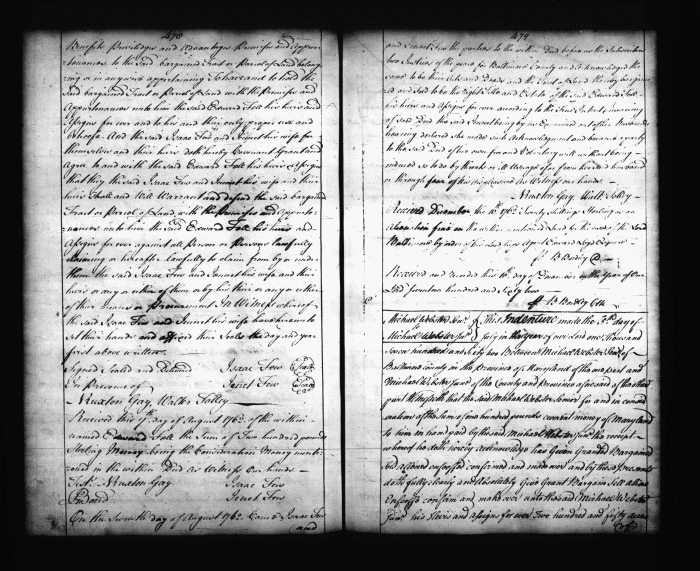 478
Benefits Priviledges and Advantages Premises and Appur=
tenances to the Said bargained Tract or Parcel of Land belong
ing or in anywise appertaining To have and to hold the
Said bargained Tract or Parcel of Land with the Premises and
Appurtenances unto him the said Edward Tall his heirs and
Assigns for ever and to his and their only proper use and
behoof. And the said Isaac Few and Jennet his wife for
themselves and their heirs doth hereby Covenant Grant and
Agree to and with the said Edward Tall his heirs & Assigns
that they the said Isaac Few and Jennet his wife and their
heirs Shall and Will Warrant and defend the Said bargained
Tract or Parcel of Land with the Premises and Appurte=
nances unto him the said Edward Tall his heirs and
Assigns for ever against all Person or Persons lawfully
claiming or hereafter Lawfully to claim from by or under
them the said Isaac Few and Jennet his wife and their
heirs or any or either of them or by his their or any or either
of their means or procurement In Witness whereof
the said Isaac Few and Jennet his wife have hereunto
Set their hands and affixed their Seals the day and year
first above written
Signed Sealed and Delivered Isaac Few Seal
In Presence of Jenet Few Seal
Nuxton Gay, Walter Tolley
Received this 7th day of August 1762 of the within
named Edward Tall the Sum of Two hundred pounds
Sterling Money being the Consideration Money ment=
ioned in the within Deed As Witness Our hands
Test. Nuxton Gay Isaac Few
Jenet Few
On the Seventh day of August 1762 Came Isaac Few
and
479
and Jennet Few the parties to the within Deed before us the Subscribers
two Justices of the peace for Baltimore County and Acknowledged the
same to be their Acts and Deeds and the Tract of Land thereby bargain
ed and Sold to be the Right Title and Estate of the Said Edward Tall
his heirs and Assigns for ever according to the True Intent & meaning
of Said Deed the said Jennet being by us Examined out of her Husbands
hearing declared she made such Acknowledgment and became a party
to the Said Deed of her own free and Voluntary will without being
induced so to do by threats or ill Usage of or from her said husband
or through fear of his displeasure As Witness our hands
Nuxton Gay Walt. Tolley
Received December the 1762 Twenty Shillings Sterling as an
Alienation fine on the within mentioned Land
B. Bordley
Received and Recorded this day of December in the Year of Our
Lord Seventeen hundred and Sixty two
B Bordley Clk
Michael Webster Senr. This Indenture made the 3d. day of
Michael Webster Junr. July in the Year of our Lord one thousand
Seven hundred and Sixty two Between Michael Webster Senr. of
Baltimore County in the Province of Maryland of the one part and
Michael Webster Junr. of the County and Province aforesaid of the other
part Witnesseth that the said Michael Webster Senior for and in consid
eration of the sum of one hundred pounds current money of Maryland
to him in hand paid by the said Michael Webster Junr. the receipt
whereof he doth hereby acknowledge has Given Granted Bargained
Sold aliened enfeoffed confirmed and made over and by these presents
doth fully clearly and Absolutely Give Grant Bargain Sell alien
Enfeoffe confirm and make over unto the said Michael Webster
Junr. his Heirs and assigns for ever Two hundred and fifty acres